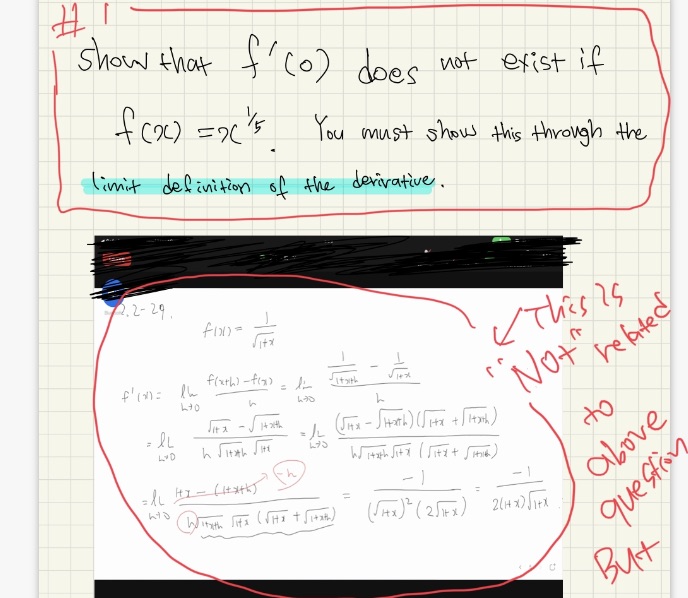 #1
Show that f'(0) does not exist if
f(x) = x^1/5. You must show this through the
limit definition of the derivative.
2.2-29.
f(x) = 1/√1+x
f'(x) = lim h→0 f(x+h)-f(x)/h = lim h→0 1/√1+x+h - 1/√1+x / h
= lim h→0 √1+x - √1+x+h / h√1+x+h √1+x = lim h→0 (√1+x - √1+x+h)(√1+x + √1+x+h) / h√1+x+h √1+x (√1+x + √1+x+h)
= lim h→0 1+x - (1+x+h) / h√1+x+h √1+x (√1+x + √1+x+h) = -1 / (√1+x)² (2√1+x) = -1 / 2(1+x)√1+x
-h
This is
"NOT" related
to
above
question
But